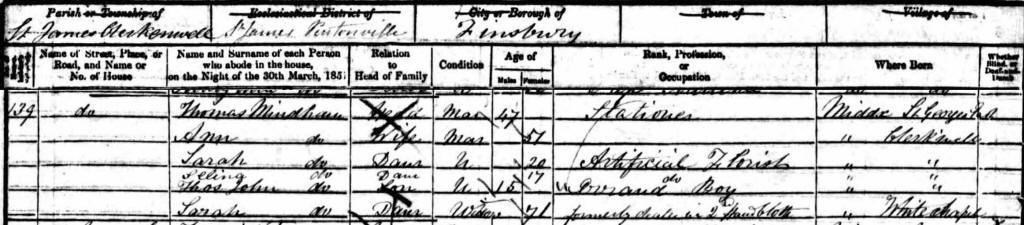 Parish or Township of Ecclesiastical District of City or Borough of Town of Village of
St James Clerkenwell St James Pentonville Finsbury
Name of Street, Place, or Road, and Name or No. of House
Name and Surname of each Person who abode in the house, on the Night of the 30th March, 1851
Relation to Head of Family
Condition
Age of
Males Females
Rank, Profession, or Occupation
Where Born
Whether Blind, or Deaf-and-Dumb
139 do Thomas Mindham Mar 47 Stationer Middx St
Ann do Wife Mar 51 " Clerkenwell
Sarah do Daur U 20 Artificial Florist " "
do Daur 17 do
Thos John do Son U 15 Errand Boy " "
Sarah do Daur Widow 71 formerly dealer in 2d hand cloth " Whitechapel